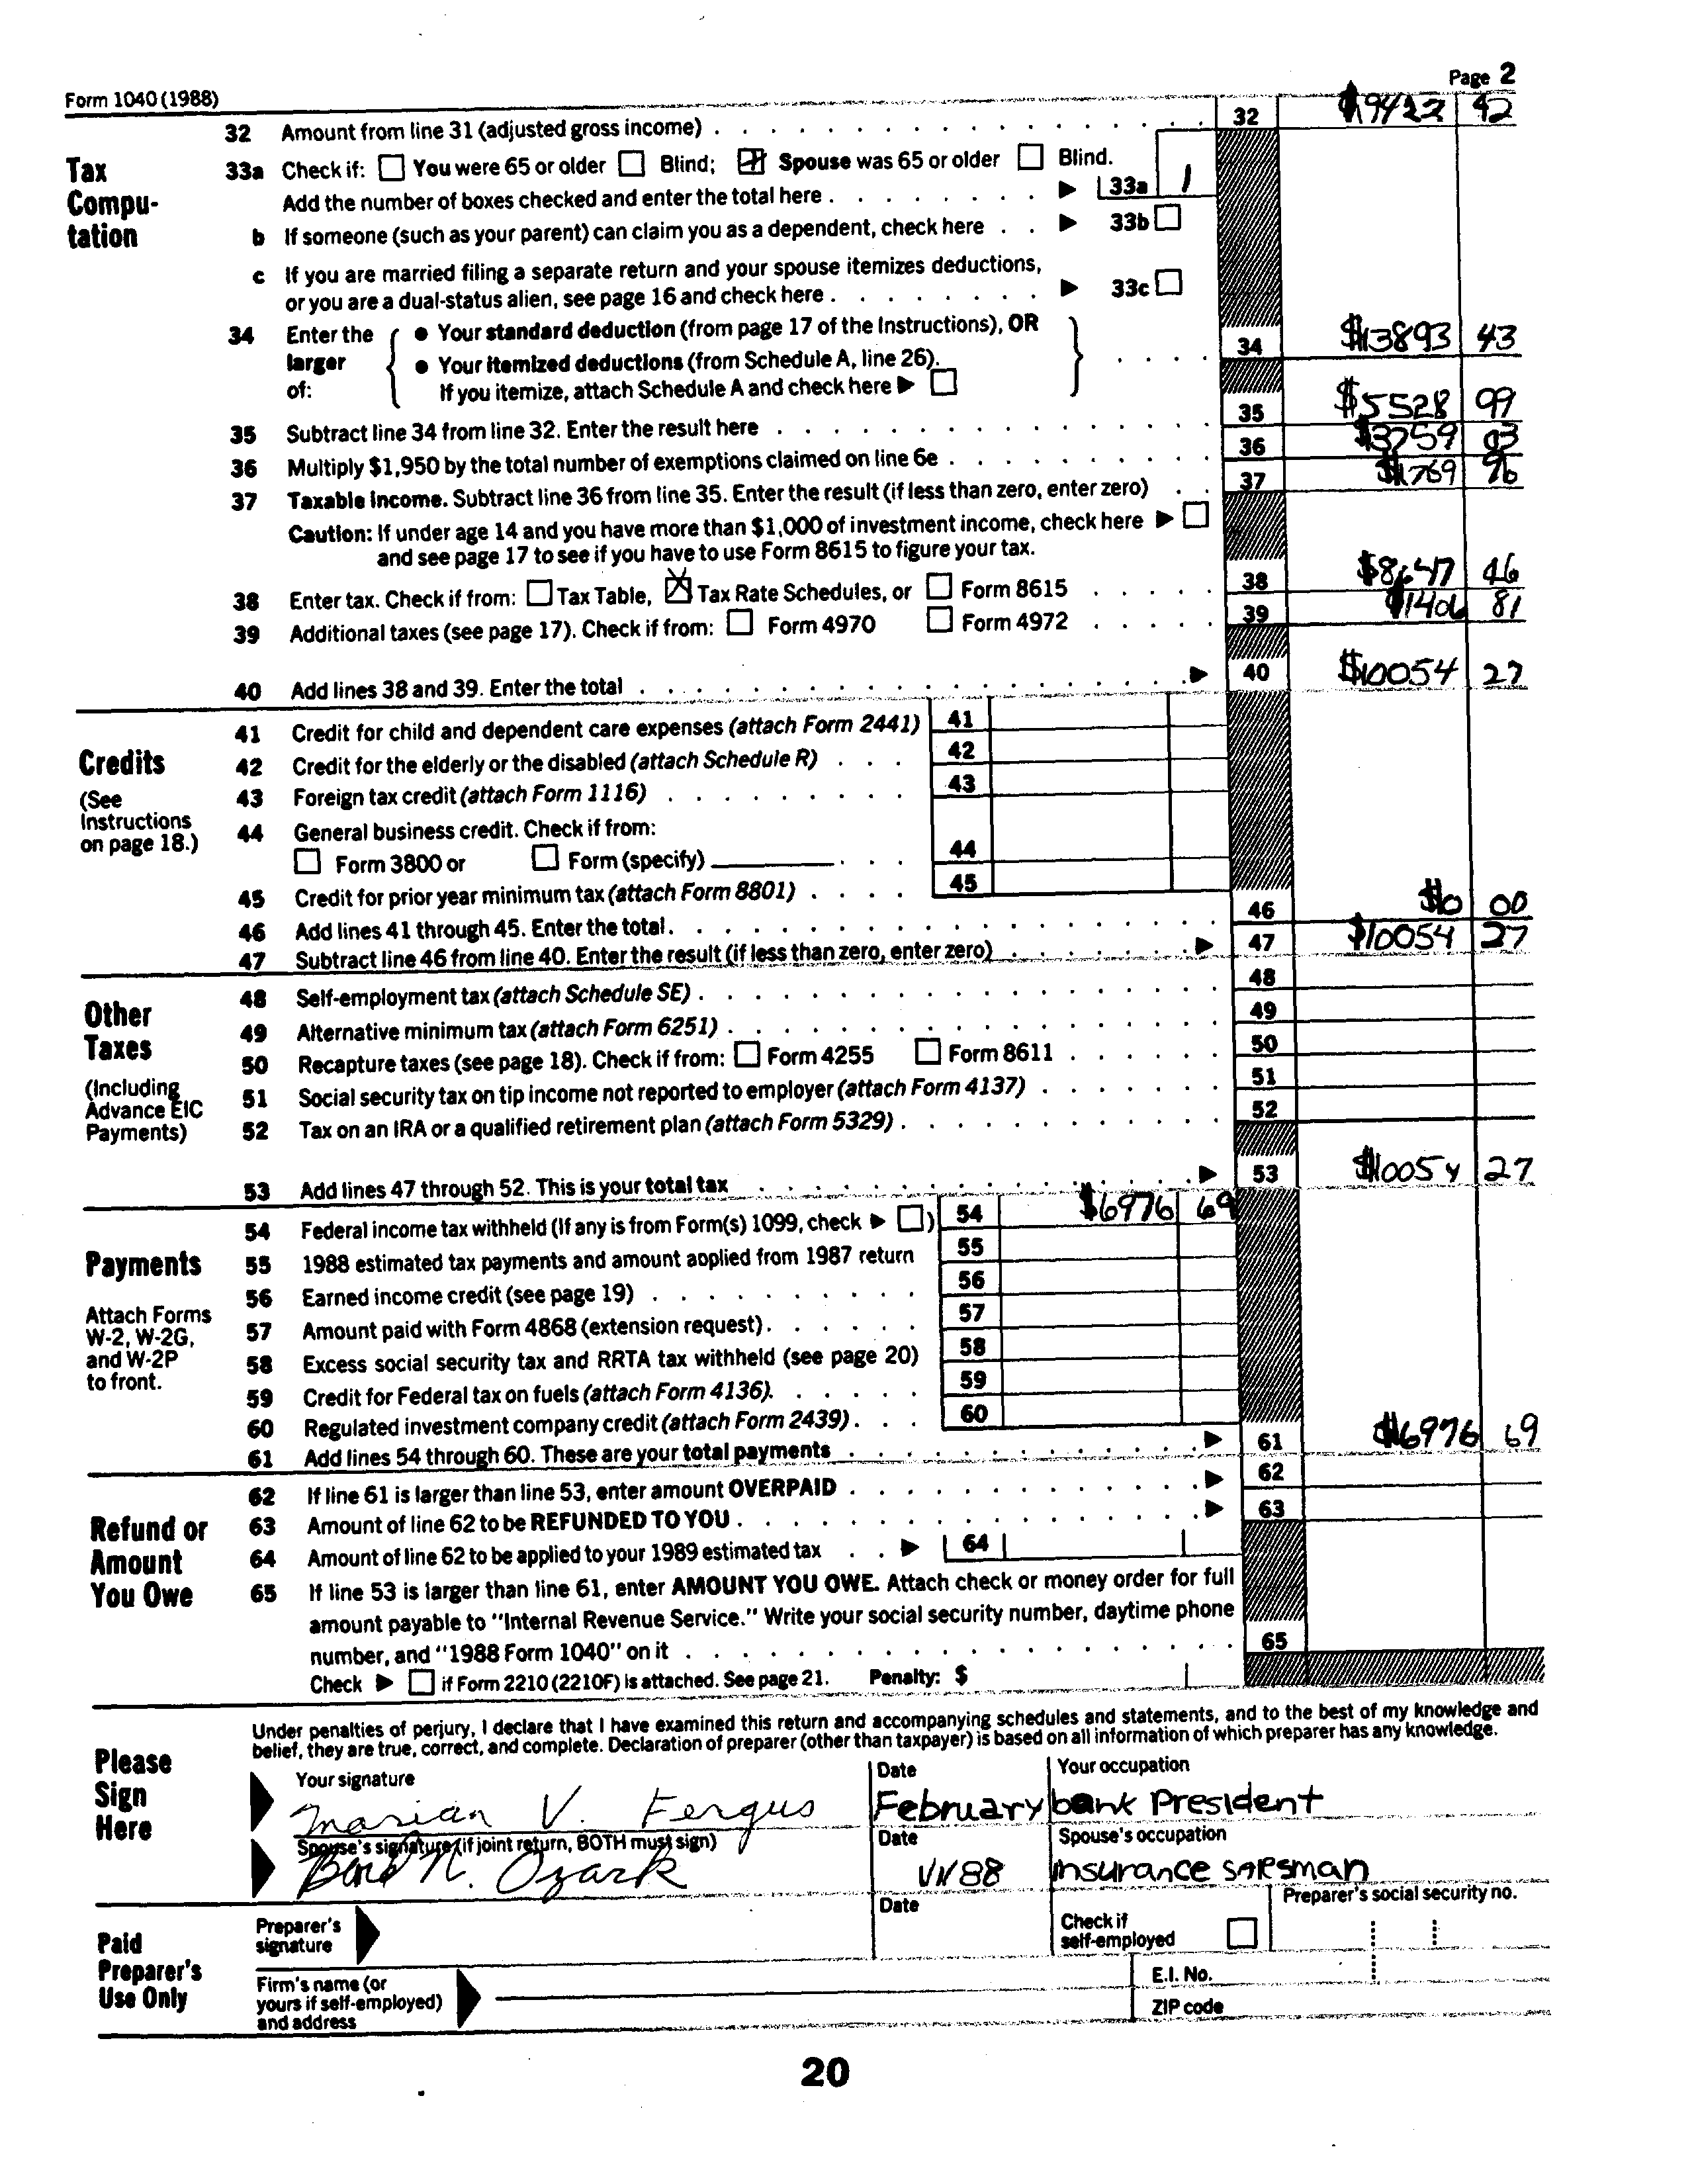 Form 1040 (1988)
Page 2
32 Amount from line 31 (adjusted gross income) . . . 32 $19422 42
Tax Compu-tation
33a Check if: You were 65 or older Blind; Spouse was 65 or older Blind.
Add the number of boxes checked and enter the total here . . . 33a 1
b If someone (such as your parent) can claim you as a dependent, check here . . 33b
c If you are married filing a separate return and your spouse itemizes deductions,
or you are a dual-status alien, see page 16 and check here . . . 33c
34 Enter the larger of:
• Your standard deduction (from page 17 of the Instructions), OR
• Your itemized deductions (from Schedule A, line 26).
If you itemize, attach Schedule A and check here
34 $13893 43
35 Subtract line 34 from line 32. Enter the result here . . . 35 $5528 99
36 Multiply $1,950 by the total number of exemptions claimed on line 6e . . . 36 $3759 03
37 Taxable income. Subtract line 36 from line 35. Enter the result (if less than zero, enter zero) . . 37 $1769 96
Caution: If under age 14 and you have more than $1,000 of investment income, check here
and see page 17 to see if you have to use Form 8615 to figure your tax.
38 Enter tax. Check if from: Tax Table, X Tax Rate Schedules, or Form 8615 . . . 38 $8647 46
39 Additional taxes (see page 17). Check if from: Form 4970 Form 4972 . . . 39 $1406 81
40 Add lines 38 and 39. Enter the total . . . 40 $10054 27
Credits
(See Instructions on page 18.)
41 Credit for child and dependent care expenses (attach Form 2441) 41
42 Credit for the elderly or the disabled (attach Schedule R) . . . 42
43 Foreign tax credit (attach Form 1116) . . . 43
44 General business credit. Check if from:
Form 3800 or Form (specify) . . . 44
45 Credit for prior year minimum tax (attach Form 8801) . . . 45
46 Add lines 41 through 45. Enter the total . . . 46 $0 00
47 Subtract line 46 from line 40. Enter the result (if less than zero, enter zero) . . . 47 $10054 27
Other Taxes
(Including Advance EIC Payments)
48 Self-employment tax (attach Schedule SE) . . . 48
49 Alternative minimum tax (attach Form 6251) . . . 49
50 Recapture taxes (see page 18). Check if from: Form 4255 Form 8611 . . . 50
51 Social security tax on tip income not reported to employer (attach Form 4137) . . . 51
52 Tax on an IRA or a qualified retirement plan (attach Form 5329) . . . 52
53 Add lines 47 through 52. This is your total tax . . . 53 $10054 27
Payments
Attach Forms W-2, W-2G, and W-2P to front.
54 Federal income tax withheld (If any is from Form(s) 1099, check ) 54 $6976 69
55 1988 estimated tax payments and amount applied from 1987 return 55
56 Earned income credit (see page 19) . . . 56
57 Amount paid with Form 4868 (extension request) . . . 57
58 Excess social security tax and RRTA tax withheld (see page 20) 58
59 Credit for Federal tax on fuels (attach Form 4136) . . . 59
60 Regulated investment company credit (attach Form 2439) . . . 60
61 Add lines 54 through 60. These are your total payments . . . 61 $6976 69
Refund or Amount You Owe
62 If line 61 is larger than line 53, enter amount OVERPAID . . . 62
63 Amount of line 62 to be REFUNDED TO YOU . . . 63
64 Amount of line 62 to be applied to your 1989 estimated tax . . 64
65 If line 53 is larger than line 61, enter AMOUNT YOU OWE. Attach check or money order for full
amount payable to "Internal Revenue Service." Write your social security number, daytime phone
number, and "1988 Form 1040" on it . . . 65
Check if Form 2210 (2210F) is attached. See page 21. Penalty: $
Please Sign Here
Under penalties of perjury, I declare that I have examined this return and accompanying schedules and statements, and to the best of my knowledge and
belief, they are true, correct, and complete. Declaration of preparer (other than taxpayer) is based on all information of which preparer has any knowledge.
Your signature Date Your occupation
Marian V. Fergus February bank President
Spouse's signature (if joint return, BOTH must sign) Date Spouse's occupation
N. Ozark 1/1/88 insurance salesman
Paid Preparer's Use Only
Preparer's signature Date Check if self-employed Preparer's social security no.
Firm's name (or yours if self-employed) and address
E.I. No.
ZIP code
20